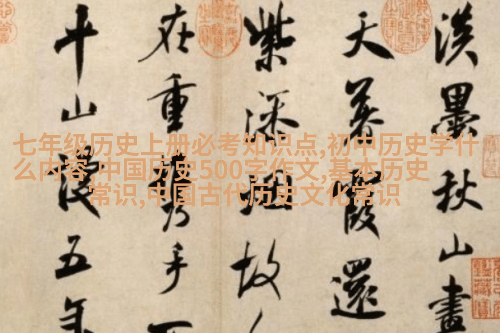 七年级历史上册必考知识点,初中历史学什
么内容,中国历史500字作文,基本历史
常识,中国古代历史文化常识
淡墨秋山畫
天暮霞還
紫添烟故
在重攜手
平山謾五年